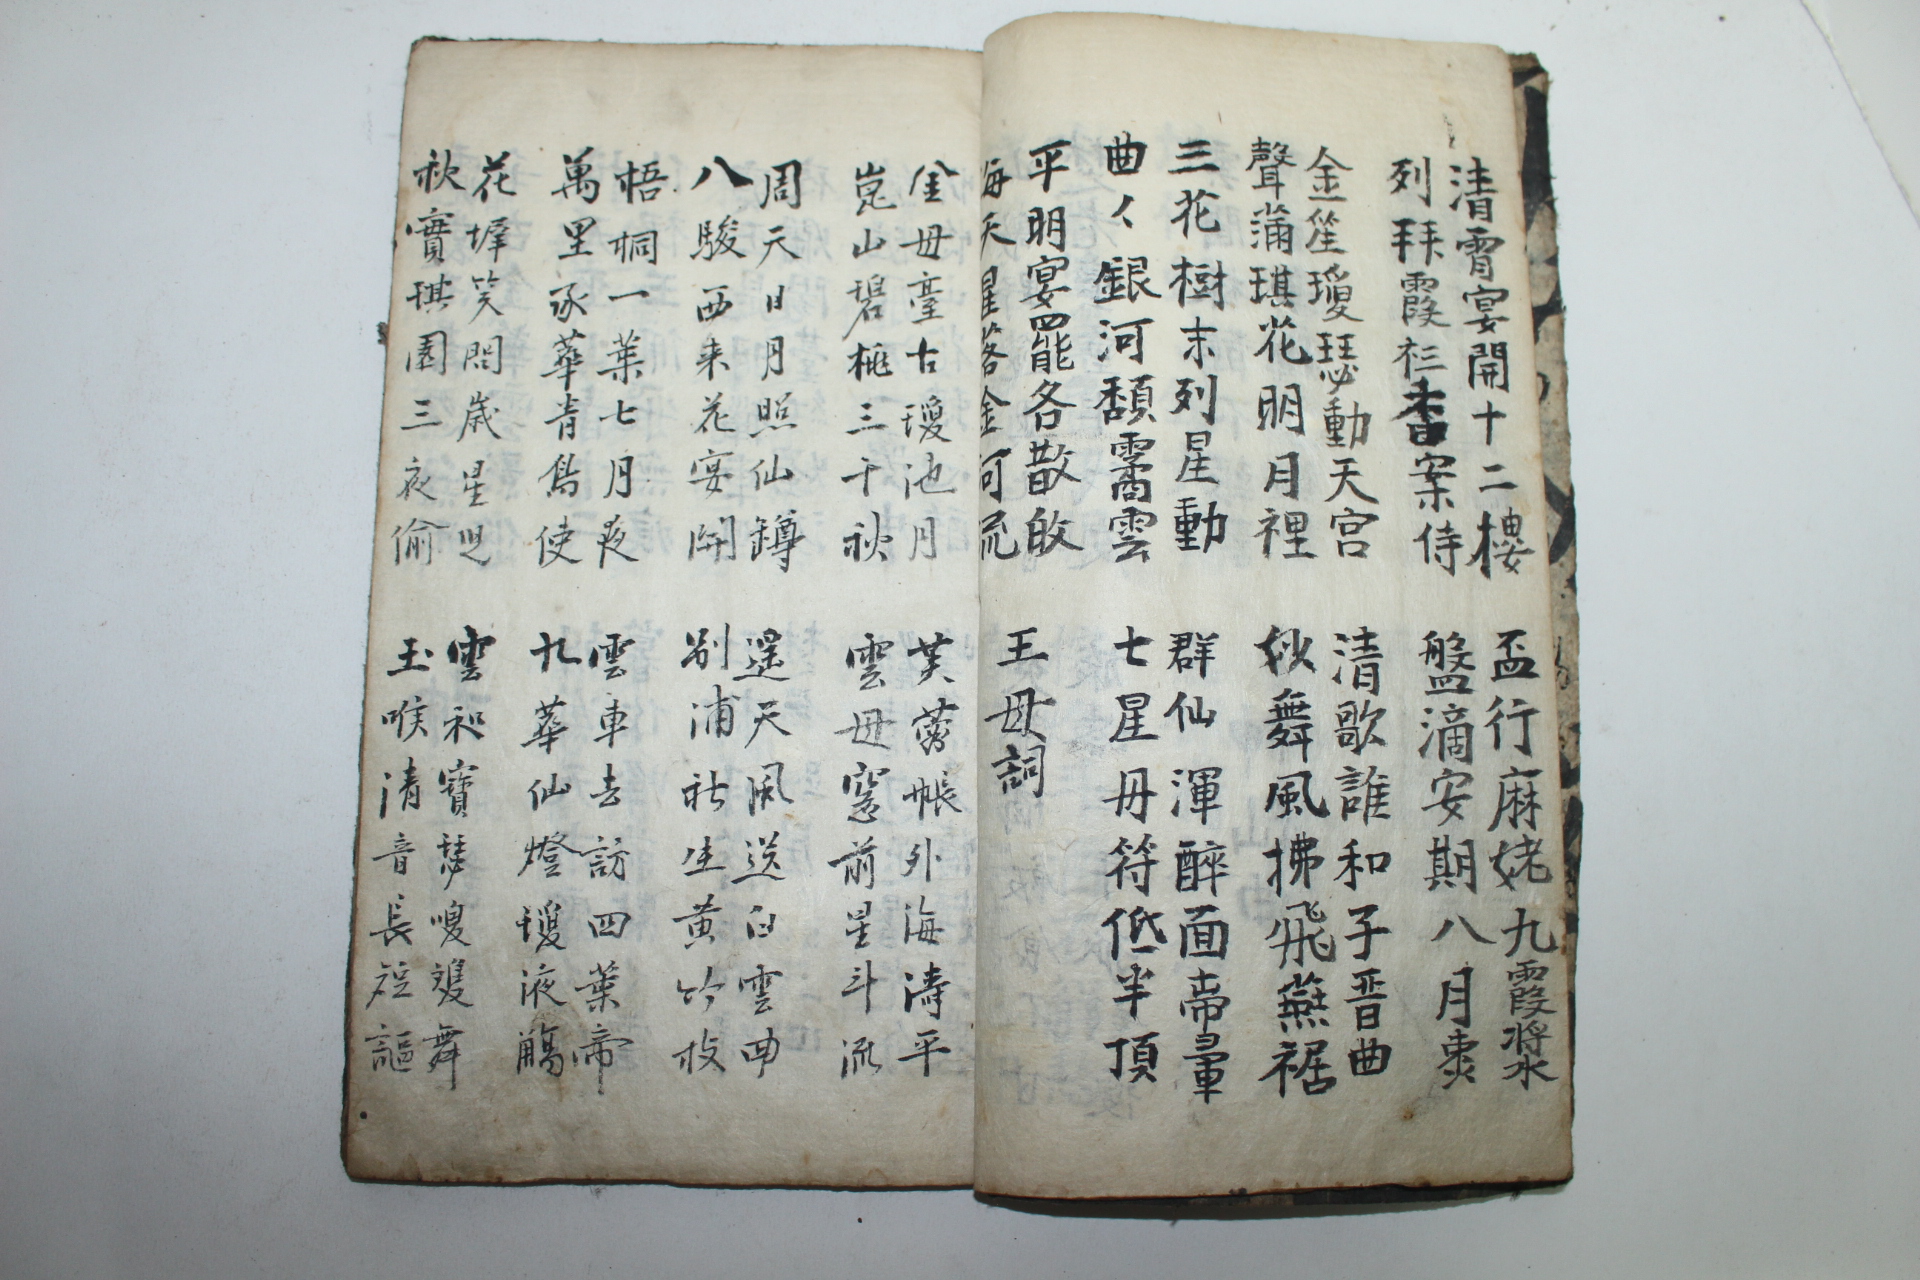 清霄宴開十二樓
列拜霞衫香案侍
盃行麻姥九霞漿
盤滴安期八月棗
金笙瓊瑟動天宮
聲滿琪花明月裡
清歌誰和子晋曲
妙舞風拂飛燕裾
三花樹末列星動
曲々銀河頹霱雲
群仙渾醉面帝暈
七星丹符低半頂
平明宴罷各散啟
海天星落金河流
王母詞
金母臺古瓊池月
崑山碧桃三千秋
芙蓉帳外海濤平
雲母窓前星斗流
周天日月照仙罇
八駿西来花宴開
遙天風送白雲曲
別浦秋生黃竹枝
梧桐一葉七月夜
萬里承華青鳥使
雲車去訪四葉帝
九華仙燈瓊液觴
花墀笑問歲星児
秋實琪園三夜偷
雲和寶瑟嗄雙舞
玉喉清音長短謳